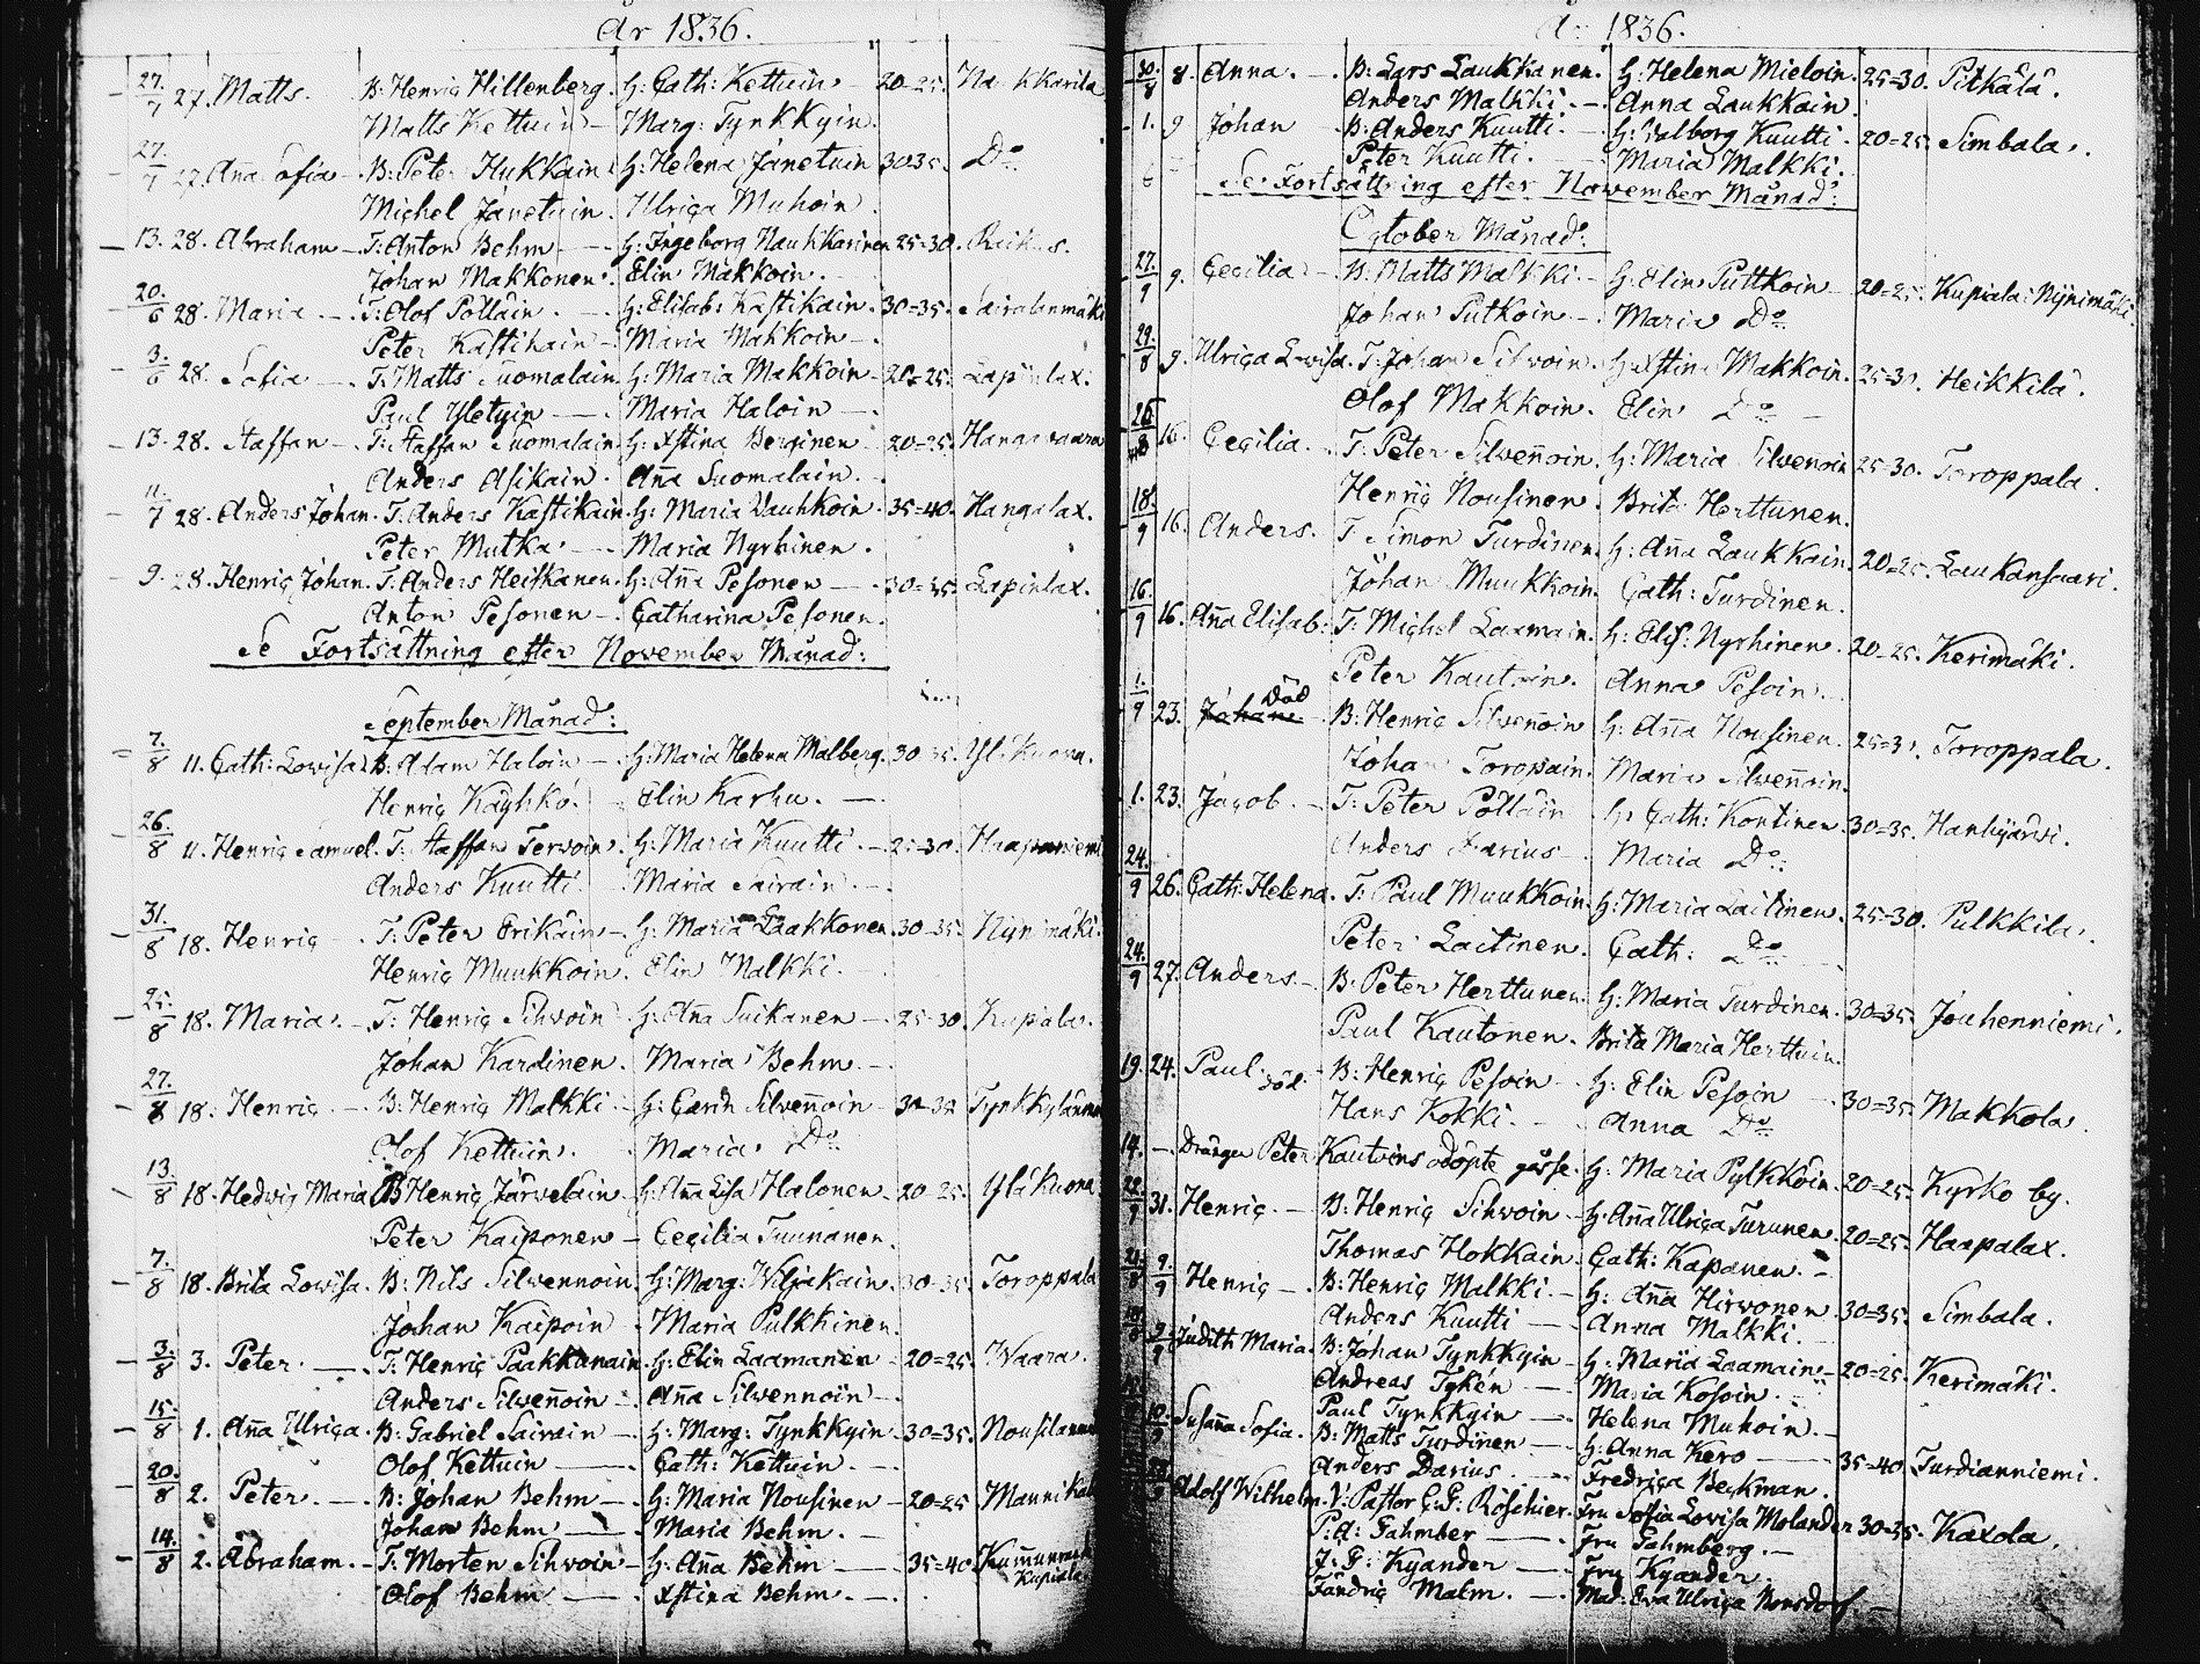 År 1836.
27./7 27. Matts. B: Henriç Hillenberg. H: Cath: Kettuin 20-25.
Matts Kettuin Marg: Tynkkyin.
27/7 27. Aña Sofia B: Peter Hukkain H: Helena Jänetuin 30=35. Do
Michel Jänetuin. Ulriça Muhoin.
13. 28. Abraham T: Anton Behm H: Ingeborg Naukkarinen 25=30.
Johan Makkonen. Elin Makkoin.
20./6 28. Maria T: Olof Pölläin. H: Elisab: Kastikain. 30=35. Sairalanmäki
Peter Kastikain Maria Makkoin
3./6 28. Sofia T: Matts Suomalain H: Maria Makkoin 20=25. Lapinlax.
Paul Yletyin Maria Haloin
13. 28. Staffan T: Staffan Suomalain H: Xstina Berginen 20=25.
Anders Asikain. Aña Suomalain.
11./7 28. Anders Johan. T: Anders Kastikain. H: Maria Wauhkoin 35=40. Hangalax.
Peter Mutka Maria Nyrhinen.
9. 28. Henriç Johan. T: Anders Heiskanen. H: Aña Pesonen 30=35. Lapinlax.
Anton Pesonen Catharina Pesonen.
Se Fortsättning efter November Månad:
September Månad:
7./8 11. Cath: Lovisa B: Adam Haloin H: Maria Helena Malberg. 30=35.
Henriç Käyhkö. Elin Karhu.
26./8 11. Henriç Samuel. T: Staffan Tervoin. H: Maria Kuutti. 25=30. Haapaniemi
Anders Kuutti. Maria Sairain.
31./8 18. Henriç T: Peter Erikäin H: Maria Laakkonen. 30=35. Nijnimäki.
Henriç Muukkoin. Elin Malkki.
25./8 18. Maria. T: Henriç Sihvoin H: Aña Suikanen 25=30. Kupiala.
Johan Kardinen. Maria Behm.
27./8 18. Henriç. B: Henriç Malkki H: Carin Silveñoin 30=35
Olof Kettuin. Maria Do
13./8 18. Hedvig Maria B Henriç Järvelain H: Aña Lisa Halonen 20=25. Yläkuona
Peter Kaiponen Ceçilia Tuunanen.
7./8 18. Brita Lovisa. B: Nils Silvennoin. H: Marg: Wiljakain. 30=35. Toroppala
Johan Kaipoin Maria Pulkkinen.
3./8 3. Peter. T: Henriç Paakkunain. H: Elin Laamanen 20=25. Waara.
Anders Silveñoin Aña Silvennoin
15./8 1. Aña Ulriça. B: Gabriel Sairain H: Marg: Tynkkyin. 30=35.
Olof Kettuin Cath: Kettuin.
20./8 2. Peter. B: Johan Behm H: Maria Nousinen 20=25
Johan Behm Maria Behm.
14./8 2. Abraham. T: Morten Sihvoin H: Aña Behm 35=40.
Kupiala
Olof Behm Xstina Behm.
1836.
30./8 8. Anna. B: Lars Laukkanen. H: Helena Mieloin. 25=30. Pitkälä.
Anders Malkki. Anna Laukkain
1. 9 Johan B: Anders Kuutti. H: Walborg Kuutti. 20=25. Simbala.
Peter Kuutti. Maria Malkki.
Se Fortsättning efter November Månad:
October Månad:
27./9 9. Ceçilia B: Matts Malkki. H: Elin Puttkoin 20=25. Kupiala: Nijnimäki.
Johan Putkoin. Maria Do
29./8 9. Ulriça Lovisa. T: Johan Silvoin. H: Xstina Makkoin. 25=30. Heikkilä.
Olof Makkoin. Elin Do
26./8 16. Ceçilia. T: Peter Silveñoin. H: Maria Silvenoin 25=30. Toroppala.
Henriç Nousinen. Brita Herttunen.
18./9 16. Anders. T. Simon Turdinen. H: Aña Laukkain. 20=25. Laukansaari.
Johan Muukkoin. Cath: Turdinen.
16./9 16. Aña Elisab: T: Michel Laamain. H: Elis: Nyrhinen. 20=25. Kerimäki.
Peter Kautoin. Anna Pesoin.
1./9 23. Johan Död B: Henriç Silveñoin H: Aña Nousinen. 25=30. Toroppala.
Johan Toropain. Maria Silveñoin.
1. 23. Jaçob. T: Peter Pölläin H: Cath: Kontinen. 30=35. Hanhijärvi.
Anders Darius Maria Do
24./9 26. Cath: Helena. T: Paul Muukkoin. H: Maria Laitinen. 25=30. Pulkkila.
Peter Laitinen. Cath: Do
24./9 27. Anders. B: Peter Herttunen. H: Maria Turdinen. 30=35. Jouhenniemi.
Paul Kautonen. Brita Maria Herttuin.
19. 24. Paul. död. B: Henriç Pesoin H: Elin Pesoin 30=35. Makkola.
Hans Kokki. Anna Do
14. Drängen Peter Kautoins odöpte gosse. H: Maria Pylkköin. 20=25. Kyrko by.
31. Henriç. B: Henriç Sihvoin H: Aña Ulriça Turunen. 20=25. Haapalax.
Thomas Hokkain. Cath: Kapanen.
9./9 Henriç B: Henriç Malkki. H: Aña Hirvonen 30=35. Simbala.
Anders Kuutti Anna Malkki.
9/9 Judith Maria. B: Johan Tynkkyin H: Maria Laamain 20=25. Kerimäki.
Andreas Tykén Maria Kosoin.
Paul Tynkkyin Helena Muhoin.
10./9 Susaña Sofia. B: Matts Turdinen H: Anna Kero 35=40 Turdianniemi.
Anders Darius. Fredriça Beçkman.
Adolf Wilhelm. V: Pastor C: G: Röschier. Fru Sofia Lovisa Molander 30=35. Kaxola.
P: A: Fahmber Fru Fahmberg.
J: F: Kyander Fru Kyander.
Fändriç Malm. Mad: Eva Ulriça Bonsdorf.